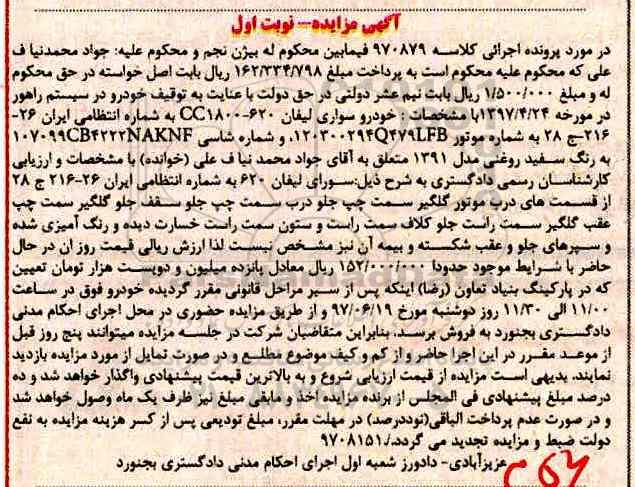 آگهی مزایده- نوبت اول
در مورد پرونده اجرائی کلاسه ۹۷۰۸۷۹ فیمابین محکوم له بیژن نجم و محکوم علیه: جواد محمدنیا ف
علی که محکوم علیه محکوم است به پرداخت مبلغ ۱۶۲/۳۳۴/۷۹۸ ریال بابت اصل خواسته در حق محکوم
له و مبلغ ۱/۵۰۰/۰۰۰ ریال بابت نیم عشر دولتی در حق دولت با عنایت به توقیف خودرو در سیستم راهور
در مورخه ۱۳۹۷/۴/۲۴با مشخصات : خودرو سواری لیفان ۶۲۰-CC۱۸۰۰ به شماره انتظامی ایران ۲۶-
۲۱۶-ج ۲۸ به شماره موتور ۱۲۰۳۰۰۲۹۴Q۴۷۹LFB، و شماره شاسی ۱۰۷۰۹۹CB۴۲۲۲NAKNF
به رنگ سفید روغنی مدل ۱۳۹۱ متعلق به آقای جواد محمد نیا ف علی (خوانده) با مشخصات و ارزیابی
کارشناسان رسمی دادگستری به شرح ذیل:سورای لیفان ۶۲۰ به شماره انتظامی ایران ۲۶-۲۱۶ ج ۲۸
از قسمت های درب موتور گلگیر سمت چپ جلو درب سمت چپ جلو سقف جلو گلگیر سمت چپ
عقب گلگیر سمت راست جلو کلاف سمت راست و ستون سمت راست خسارت دیده و رنگ آمیزی شده
و سپرهای جلو و عقب شکسته و بیمه آن نیز مشخص نیست لذا ارزش ریالی قیمت روز ان در حال
حاضر با شرایط موجود حدودا ۱۵۲/۰۰۰/۰۰۰ ریال معادل پانزده میلیون و دویست هزار تومان تعیین
که در پارکینگ بنیاد تعاون (رضا) اینکه پس از سیر مراحل قانونی مقرر گردیده خودرو فوق در ساعت
۱۱/۰۰ الی ۱۱/۳۰ روز دوشنبه مورخ ۹۷/۰۶/۱۹ و از طریق مزایده حضوری در محل اجرای احکام مدنی
دادگستری بجنورد به فروش برسد، بنابراین متقاضیان شرکت در جلسه مزایده میتوانند پنج روز قبل
از موعد مقرر در این اجرا حاضر و از کم و کیف موضوع مطلع و در صورت تمایل از مورد مزایده بازدید
نمایند. بدیهی است مزایده از قیمت ارزیابی شروع و به بالاترین قیمت پیشنهادی واگذار خواهد شد و ده
درصد مبلغ پیشنهادی فی المجلس از برنده مزایده اخذ و مابقی مبلغ نیز ظرف یک ماه وصول خواهد شد
و در صورت عدم پرداخت الباقی(نوددرصد) در مهلت مقرر، مبلغ تودیعی پس از کسر هزینه مزایده به نفع
دولت ضبط و مزایده تجدید می گردد./۹۷۰۸۱۵۱
عزیزآبادی- دادورز شعبه اول اجرای احکام مدنی دادگستری بجنورد